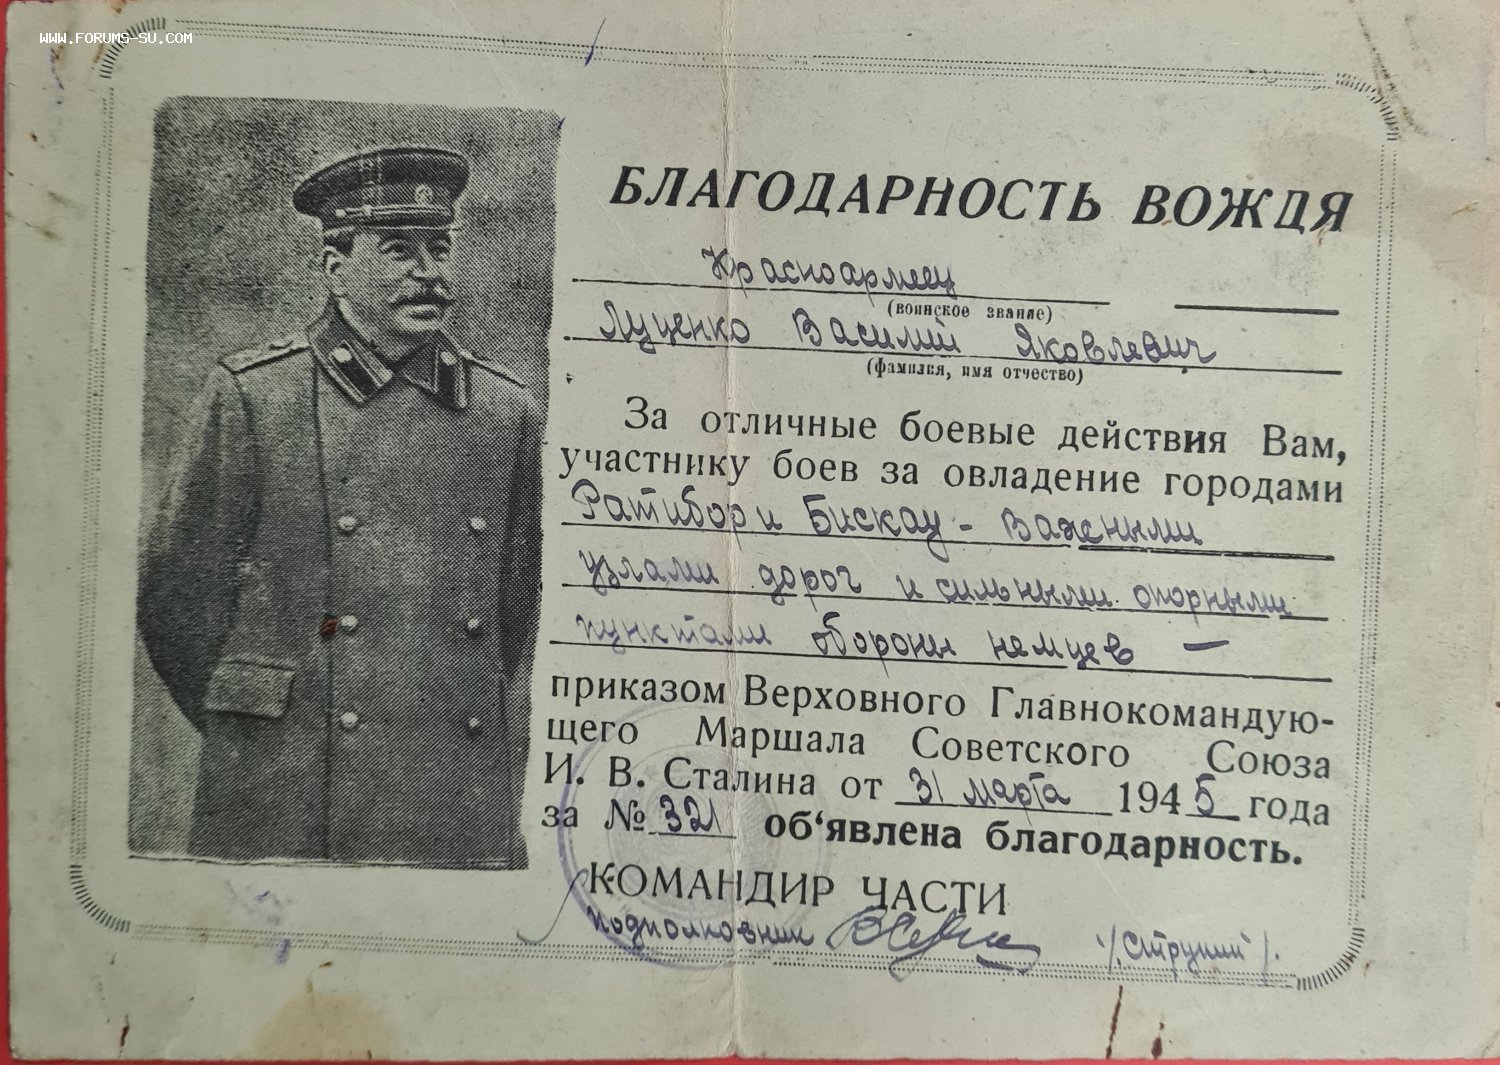 WWW.FORUMS-SU.COM
БЛАГОДАРНОСТЬ ВОЖДЯ
Красноармеец
(воинское звание)
Луценко Василий Яковлевич
(фамилия, имя отчество)
За отличные боевые действия Вам,
участнику боев за овладение городами
Ратибор и Бискау - важными
узлами дорог и сильными опорными
пунктами обороны немцев —
приказом Верховного Главнокомандую-
щего Маршала Советского Союза
И. В. Сталина от 31 марта 1945 года
за № 321 об‘явлена благодарность.
КОМАНДИР ЧАСТИ
подполковник /Струкий/.